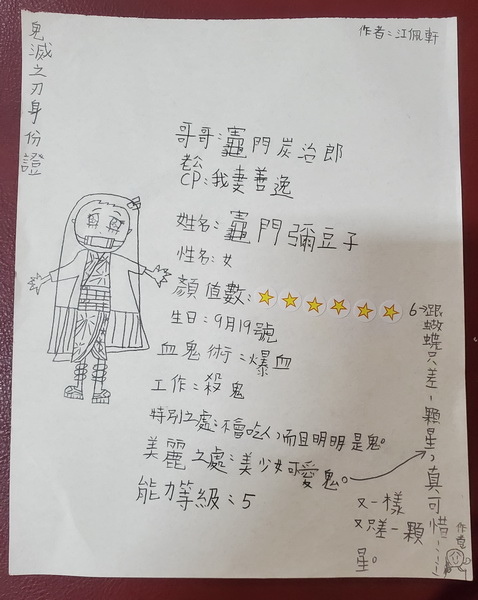 鬼滅之刃身份證
作者:江佩軒
哥哥:竈門炭治郎
老公
CP:我妻善逸
姓名:竈門彌豆子
性名:女
顏值數:
生日:9月19號
血鬼術:爆血
工作:殺鬼
特別之處:不會吃人,而且明明是鬼。
美麗之處:美少女可愛鬼。
能力等級:5
6>跟蝴蝶只差1顆星,真可惜……
又一樣
又只差一顆
星。